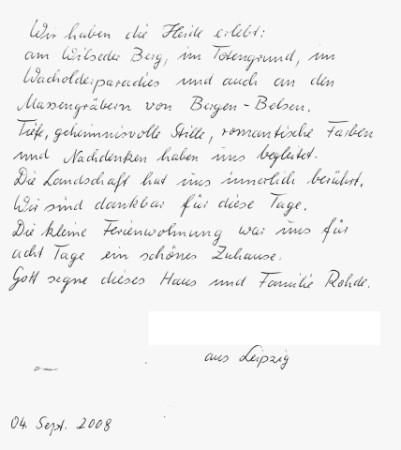 Wir haben die Heide erlebt:
am Wilseder Berg, im Totengrund, im
Wacholderparadies und auch an den
Massengräbern von Bergen-Belsen.
Tiefe, geheimnisvolle Stille, romantische Farben
und Nachdenken haben uns begleitet.
Die Landschaft hat uns innerlich berührt.
Wir sind dankbar für diese Tage.
Die kleine Ferienwohnung war uns für
acht Tage ein schönes Zuhause.
Gott segne dieses Haus und Familie Rohde.
aus Leipzig
04. Sept. 2008